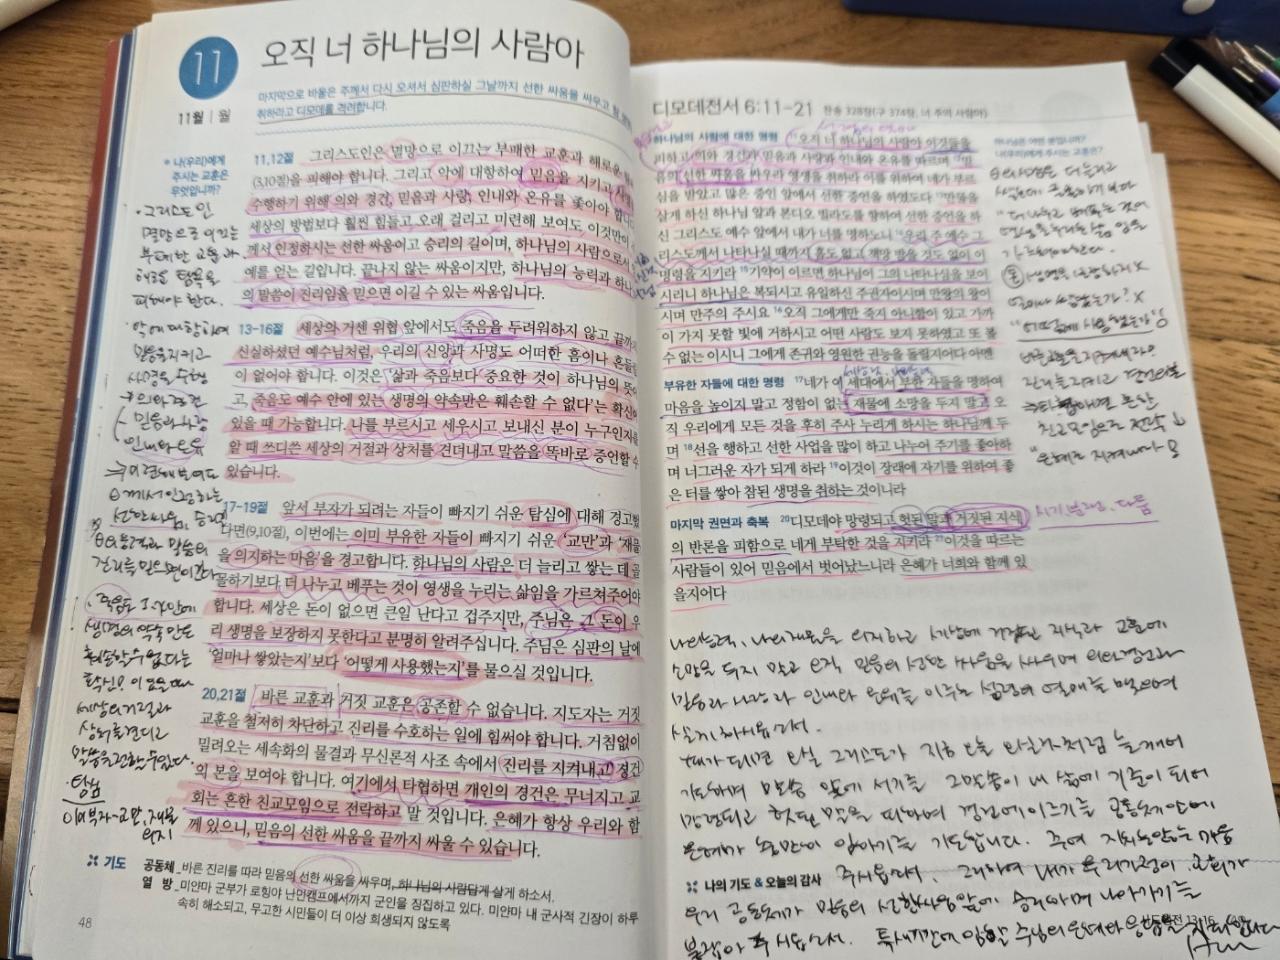 11
오직 너 하나님의 사람아
11월 | 월
마지막으로 바울은 주께서 다시 오셔서 심판하실 그날까지 선한 싸움을 싸우고
취하라고 디모데를 격려합니다.
나(우리)에게
주시는 교훈은
무엇입니까?
11,12절 그리스도인은 멸망으로 이끄는 부패한 교훈과 해로운
(3,10절)을 피해야 합니다. 그리고 악에 대항하여 믿음을 지키고
수행하기 위해 의와 경건, 믿음과 사랑, 인내와 온유를 좇아야 합니다.
세상의 방법보다 훨씬 힘들고 오래 걸리고 미련해 보여도 이것만이
께서 인정하시는 선한 싸움이고 승리의 길이며, 하나님의 사람으로서
예를 얻는 길입니다. 끝나지 않는 싸움이지만, 하나님의 능력과 하나
의 말씀이 진리임을 믿으면 이길 수 있는 싸움입니다.
13-16절 세상의 거센 위협 앞에서도 죽음을 두려워하지 않고 끝까지
신실하셨던 예수님처럼, 우리의 신앙과 사명도 어떠한 흠이나 흔들
이 없어야 합니다. 이것은 ‘삶과 죽음보다 중요한 것이 하나님의 뜻
고, 죽음도 예수 안에 있는 생명의 약속만은 훼손할 수 없다’는 확신
있을 때 가능합니다. 나를 부르시고 세우시고 보내신 분이 누구인지
알 때 쓰디쓴 세상의 거절과 상처를 견뎌내고 말씀을 똑바로 증언할 수
있습니다.
17-19절 앞서 부자가 되려는 자들이 빠지기 쉬운 탐심에 대해 경고했
다면(9,10절), 이번에는 이미 부유한 자들이 빠지기 쉬운 ‘교만’과 ‘재물
을 의지하는 마음’을 경고합니다. 하나님의 사람은 더 늘리고 쌓는 데 골
몰하기보다 더 나누고 베푸는 것이 영생을 누리는 삶임을 가르쳐주어야
합니다. 세상은 돈이 없으면 큰일 난다고 겁주지만, 주님은 그 돈이 우
리 생명을 보장하지 못한다고 분명히 알려주십니다. 주님은 심판의 날에
‘얼마나 쌓았는지’보다 ‘어떻게 사용했는지’를 물으실 것입니다.
20,21절 바른 교훈과 거짓 교훈은 공존할 수 없습니다. 지도자는 거짓
교훈을 철저히 차단하고 진리를 수호하는 일에 힘써야 합니다. 거침없이
밀려오는 세속화의 물결과 무신론적 사조 속에서 진리를 지켜내고 경건
의 본을 보여야 합니다. 여기에서 타협하면 개인의 경건은 무너지고 교
회는 흔한 친교모임으로 전락하고 말 것입니다. 은혜가 항상 우리와 함
께 있으니, 믿음의 선한 싸움을 끝까지 싸울 수 있습니다.
기도 공동체_바른 진리를 따라 믿음의 선한 싸움을 싸우며, 하나님의 사람답게 살게 하소서.
열 방_미얀마 군부가 로힝야 난민캠프에서까지 군인을 징집하고 있다. 미얀마 내 군사적 긴장이 하루
속히 해소되고, 무고한 시민들이 더 이상 희생되지 않도록
48
·그리스도인
멸망으로 이끄는
부패한 교훈과
해로운 탐욕을
피해야 한다.
·악에 대항하여
믿음을 지키고
사명을 수행
의와 경건
믿음과 사랑
인내와 온유
미련해 보여도
께서 인정하는
선한 싸움, 승리
죽음도 예수 안에
생명의 약속만은
훼손할 수 없다는
확신!
세상의 거절과
상처를 견디고
말씀을 전할 수 있다.
·탐심
이미 부자-교만, 재물
의지
디모데전서 6:11-21 찬송 328장(구 374장, 너 주의 사람아)
하나님의 사람에 대한 명령 11오직 너 하나님의 사람아 이것들을
피하고 의와 경건과 믿음과 사랑과 인내와 온유를 따르며 12믿
음의 선한 싸움을 싸우라 영생을 취하라 이를 위하여 네가 부르
심을 받았고 많은 증인 앞에서 선한 증언을 하였도다 13만물을
살게 하신 하나님 앞과 본디오 빌라도를 향하여 선한 증언을 하
신 그리스도 예수 앞에서 내가 너를 명하노니 14우리 주 예수 그
리스도께서 나타나실 때까지 흠도 없고 책망 받을 것도 없이 이
명령을 지키라 15기약이 이르면 하나님이 그의 나타나심을 보이
시리니 하나님은 복되시고 유일하신 주권자이시며 만왕의 왕이
시며 만주의 주시요 16오직 그에게만 죽지 아니함이 있고 가까
이 가지 못할 빛에 거하시고 어떤 사람도 보지 못하였고 또 볼
수 없는 이시니 그에게 존귀와 영원한 권능을 돌릴지어다 아멘
부유한 자들에 대한 명령 17네가 이 세대에서 부한 자들을 명하여
마음을 높이지 말고 정함이 없는 재물에 소망을 두지 말고 오
직 우리에게 모든 것을 후히 주사 누리게 하시는 하나님께 두
며 18선을 행하고 선한 사업을 많이 하고 나누어 주기를 좋아하
며 너그러운 자가 되게 하라 19이것이 장래에 자기를 위하여 좋
은 터를 쌓아 참된 생명을 취하는 것이니라
마지막 권면과 축복 20디모데야 망령되고 헛된 말과 거짓된 지식
의 반론을 피함으로 네게 부탁한 것을 지키라 21이것을 따르는
사람들이 있어 믿음에서 벗어났느니라 은혜가 너희와 함께 있
을지어다
하나님은 어떤 분입니까?
내(우리)에게 주시는 교훈은?
"더 나누고 베푸는 것이
"어떻게 사용했는가"
진리를 지키고 경건의 본
친교모임으로 전락
시기, 분쟁, 다툼
나의 능력, 나의 재물을 의지하고 세상에 거짓된 지식과 교훈에
소망을 두지 말고 오직 믿음의 선한 싸움을 싸우며 의와 경건과
믿음과 사랑과 인내와 온유를 이루는 성령의 열매를 맺으며
살게 하시옵소서.
때가 되면 오실 그리스도가 지금
기도하며 말씀 앞에 서기를 그 말씀이 내 삶에 기준이 되어
나의 기도 & 오늘의 감사
주시옵소서.
우리 공동체가 믿음의 선한 싸움 앞에 승리하며 나아가기를
붙잡아 주시옵소서.